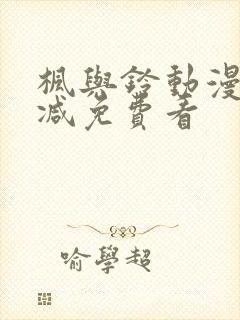 楓與鈴動漫
減免費看
喻學超